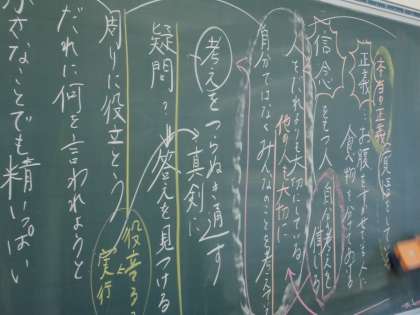 本当の正義
正義…お腹をすかせた人に
食物を分けあげる
信念をもつ人
自分の考えを信じる
人をだれよりも大切にしている
他の人も大切に
自分ではなくみんなのことを考えて
考えをつらぬき通す
真剣に
疑問?→答えを見つける
周りに役立とう
役立つ
実行
だれに何を言われようと
小さなことでも精いっぱい